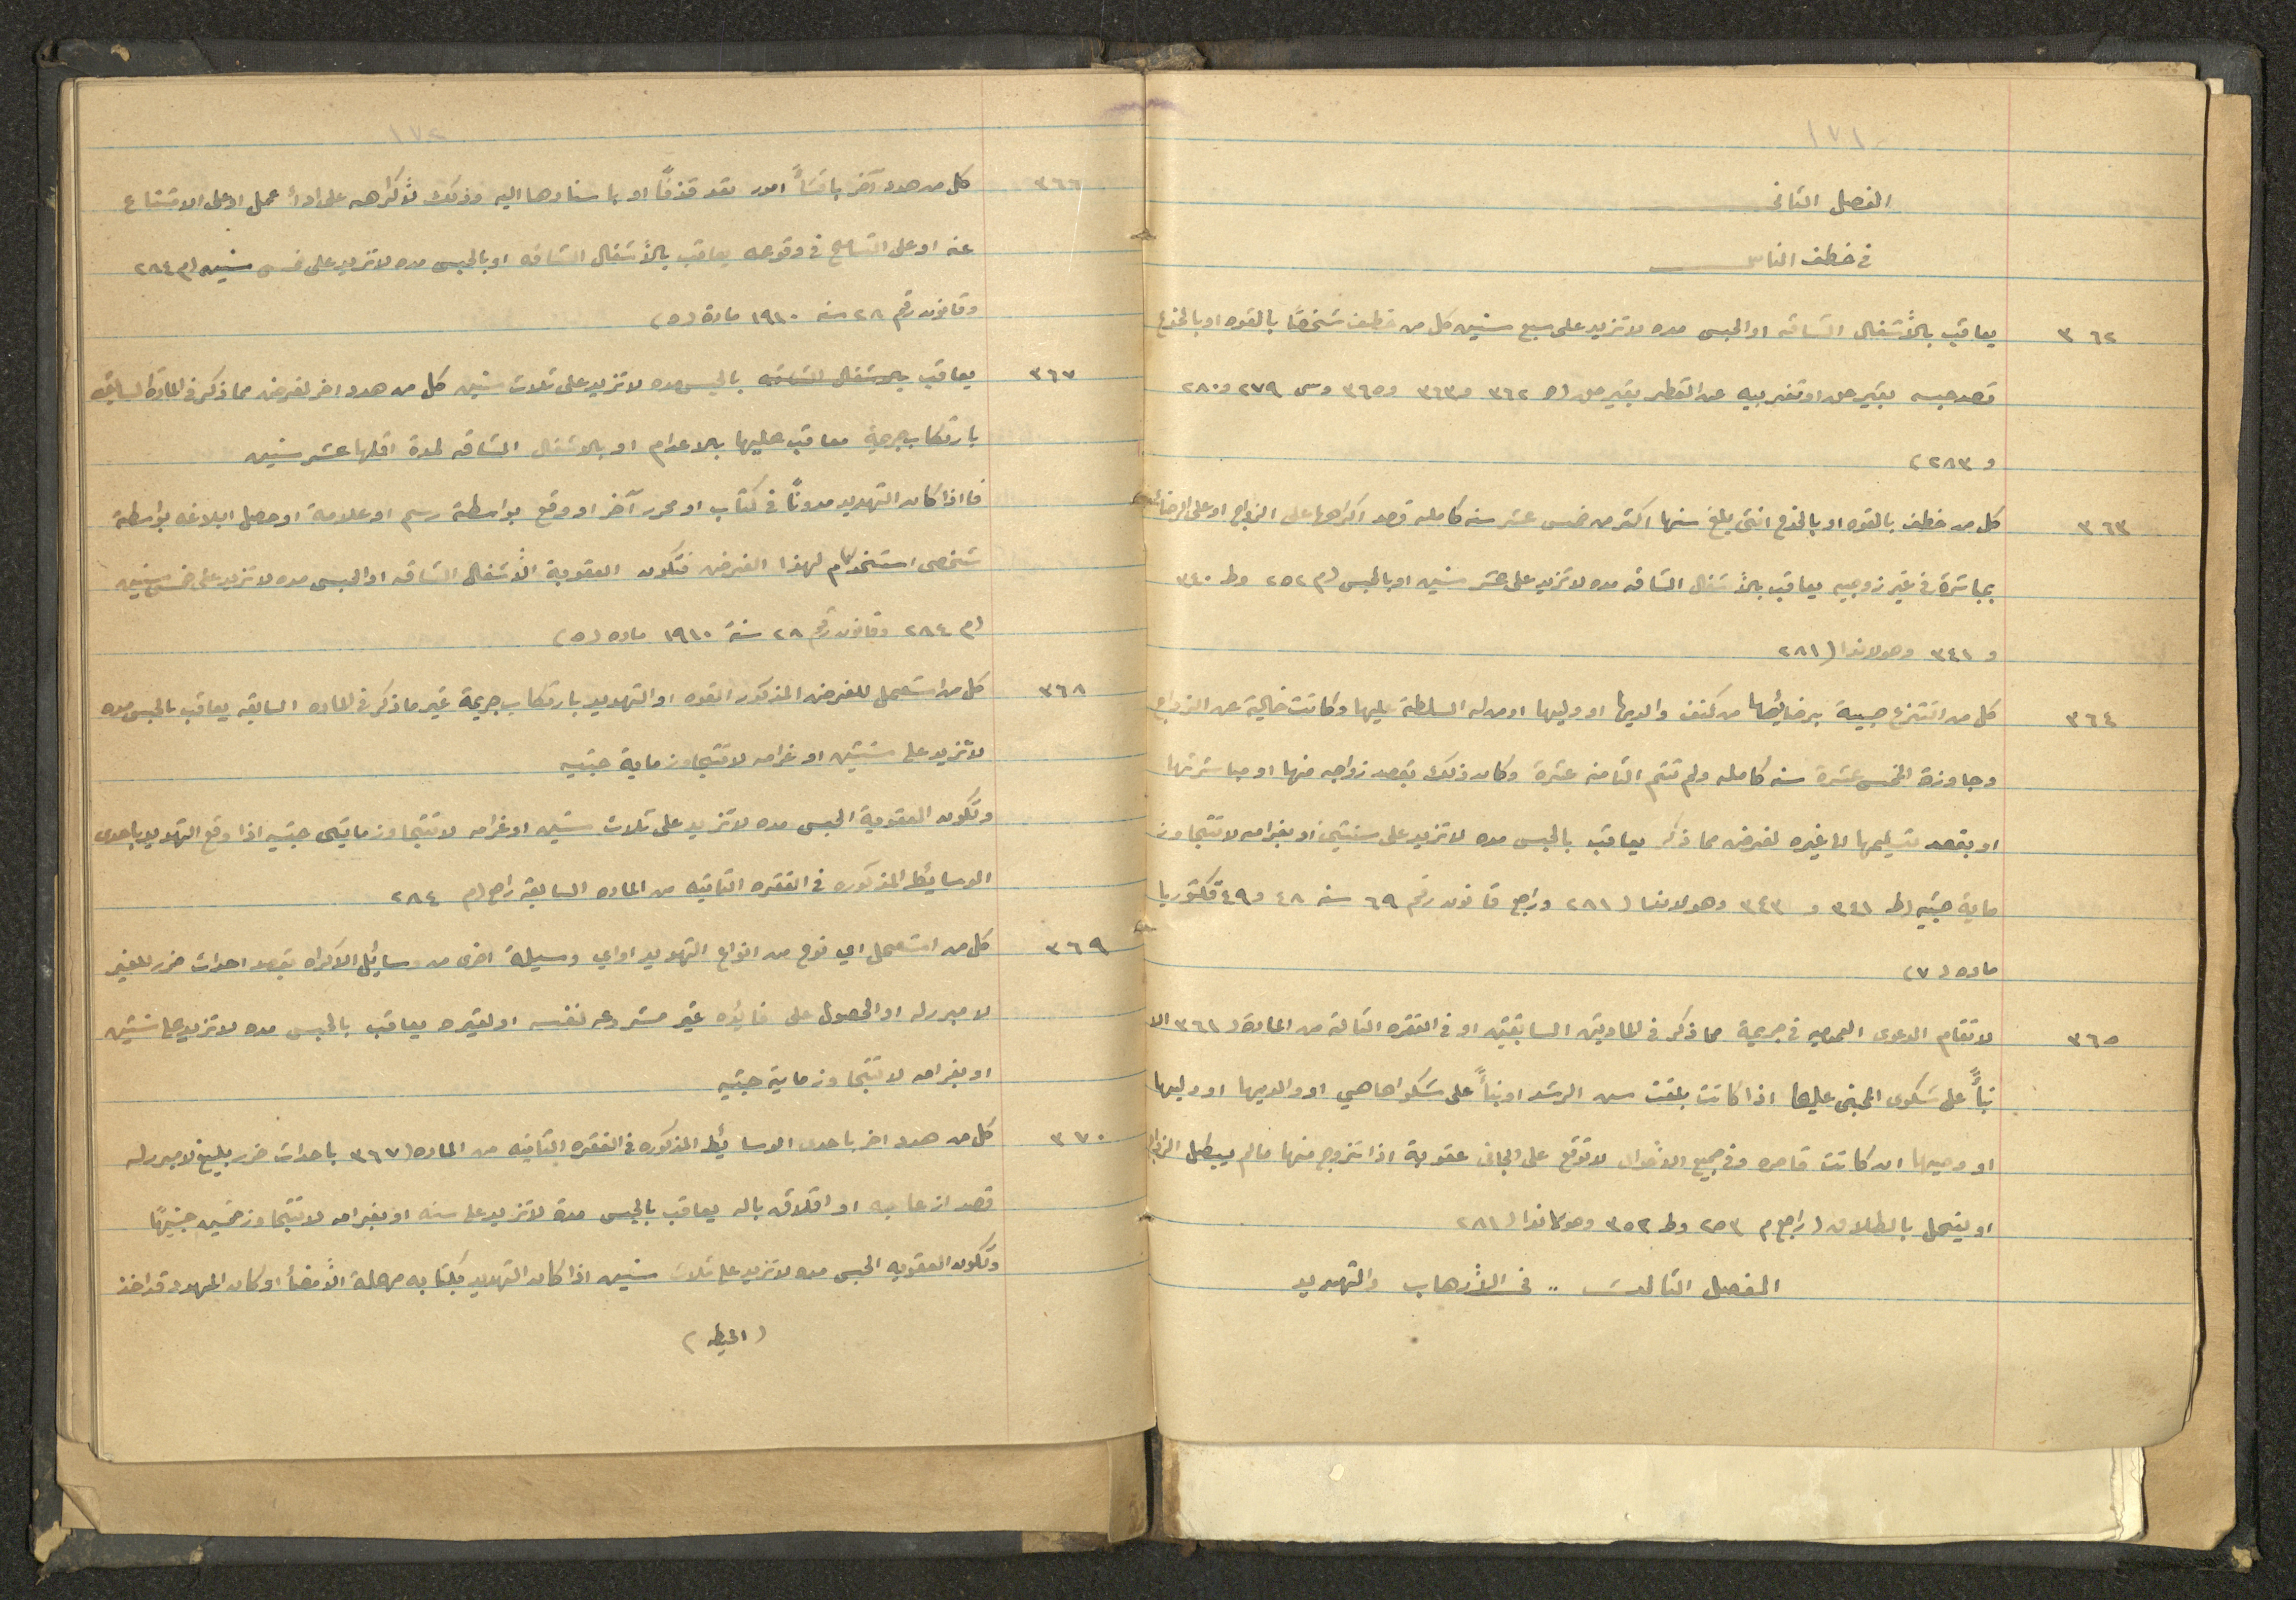 ١٧١
الفصل الثانى
فى خطف الناس
٣٦٢ يعاقب بالأشغال الشاقه او الحبس مده لاتزيد على سبع سنين كل من خطف شخصاً بالقوه او بالخدع
قصد حبسه بغير حق او تغريبه عن القطر بغير حق (ه ٣٦٢ و٣٦٣ و٣٦٥ وس ٢٧٩ و٢٨٠
و ٢٨٣)
٣٦٣ كل من خطف بالقوه او بالخدع انثى بلغ سنها اكثر من خمس عشر سنه كامله قصد اكراهها على الزواج او على الرضائه
بمباشرة فى غير زوجيه يعاقب بالأشغال الشاقه مده لاتزيد على عشر سنين او بالحبس (م ٢٥٢ وط ٣٤٠
و ٣٤١ وهولاندا (٢٨١
٣٦٤ كل من انتزع صبية برضائها من كنف والديها او وليها او من له السلطة عليها وكانت خالية عن الزواج
وجاوزة الخمس عشرة سنه كامله ولم تتم الثامنه عشرة وكان ذلك بقصد زواجه منها او مباشرتها
او بقصد تسليمها لغيره لغرض مما ذكر يعاقب بالحبس مده لاتزيد على سنتين او بغرامه لا تتجاوز
ماية جنيه (ط ٣٤١ و ٣٤٣ وهولاندا (٢٨١ وراجع قانون رقم ٦٩ سنه ٤٨ و٤٩ فكتوريا
ماده (٧)
٣٦٥ لا تقام الدعوى العموميه فى جريمة مما ذكر فى المادتين السابقتين او فى الفقره الثالثه من المادة (٣٦١ الا
بنأً على شكوى المجنى عليها اذا كانت بلغت سن الرشد او بنأً على شكواها هي او والديها او وليها
او وصيها ان كانت قاصره وفى جميع الأحوال لا توقع على الجانى عقوبة اذا تزوج منها مالم يبطل الزواج
او ينحل بالطلاق (راجع م ٢٥٣ وط ٣٥٢ وهولاندا (٢٨١
الفصل الثالث .. فى الأرهاب والتهديد
١٧٢
٣٦٦ كل من هدد آخر بافشأ امور تعد قذفاً او باسنادها اليه وذلك لأكراهه على ادأ عمل او على الامتناع
عنه او على التسامح فى وقوعه يعاقب بالأشغال الشاقه او بالحبس مده لاتزيد على خمس سنين (م ٢٨٤
وقانون رقم ٢٨ سنه ١٩١٠ مادة (٥)
٣٦٧ يعاقب بالاشغال الشاقه بالحبس مده لاتزيد على ثلاث سنين كل من هدد اخر لغرض مما ذكر فى المادة السابقه
بارتكاب جريمة معاقب عليها بالاعدام او بالاشغال الشاقه لمدة اقلها عشر سنين
فاذا كان التهديد مدوناً فى كتاب او محرر آخر او وقع بواسطة رسم او علامة او حصل ابلاغه بواسطة
شخص استخدم لهذا الغرض فتكون العقوبة الأشغال الشاقه او الحبس مده لا تزيد على خمس سنين
(م ٢٨٤ وقانون رقم ٢٨ سنة ١٩١٠ ماده (٥)
٣٦٨ كل من استعمل للغرض المذكور القوه او التهديد بارتكاب جريمة غير ما ذكر فى الماده السابقه يعاقب بالحبس مده
لاتزيد على سنتين او غرامه لا تتجاوز ماية جنيه
وتكون العقوبة الحبس مده لاتزيد على ثلاث سنين او غرامه لا تتجاوز مايتى جنيه اذا وقع التهديد باحدى
الوسايط المذكوره فى الفقره الثانيه من الماده السابقة راجع (م ٢٨٤
٣٦٩ كل من استعمل اي نوع من انواع التهديد او اي وسيلة اخرى من وسائل الاكراه بقصد احداث ضرر للغير
لا مبرر له او الحصول على فايده غير مشروعه لنفسه او لغيره يعاقب بالحبس مده لاتزيد على سنتين
او بغرامه لا تتجاوز ماية جنيه
٣٧٠ كل من هدد اخر باحدى الوسائط المذكوره فى الفقره الثانيه من الماده (٣٦٧ باحداث ضرر بليغ لامبرر له
قصد ازعاجه او اقلاق باله يعاقب بالحبس مدة لاتزيد على سنه او بغرامه لا تتجاوز خمسين جنيهاً
وتكون العقوبه الحبس مده لاتزيد على ثلاث سنين اذا كان التهديد بكتابه مهملة الأمضأ او كان المهدد قد اخذ
(الحيطه)